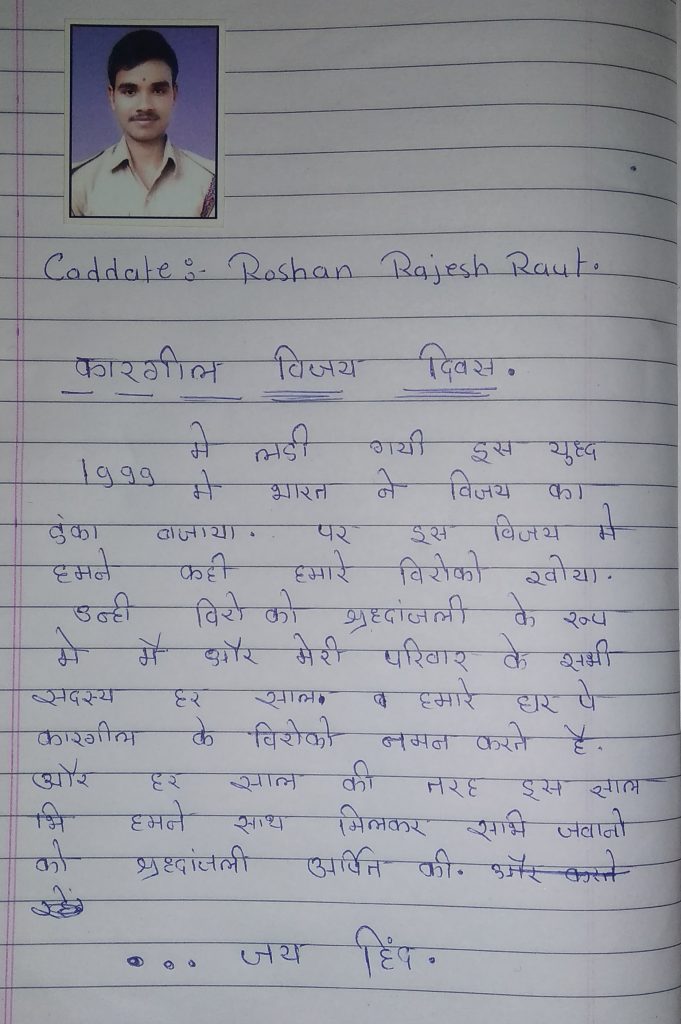 Caddate:- Roshan Rajesh Raut.
कारगील विजय दिवस.
1999 मे लडी गयी इस युध्द
मे भारत ने विजय का
डंका बजाया. पर इस विजय मे
हमने कही हमारे विरोको खोया.
उन्ही विरो को श्रध्दांजली के रूप
मे मै और मेरी परिवार के सभी
सदस्य हर साल. हमारे घर पे
कारगील के विरोको नमन करते है.
और हर साल की तरह इस साल
भि हमने साथ मिलकर साभि जवानो
को श्रध्दांजली अर्पित की. और करते
रहेंगे
... जय हिंद.